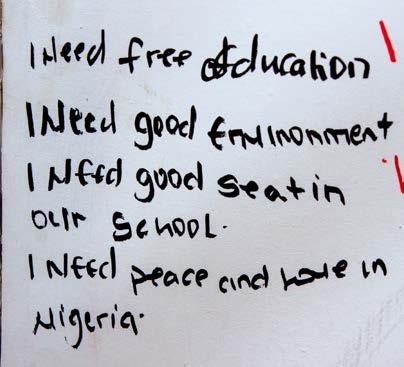 I Need free Education
I Need good Environment
I Need good seat in
our school.
I Need peace and love in
Nigeria.